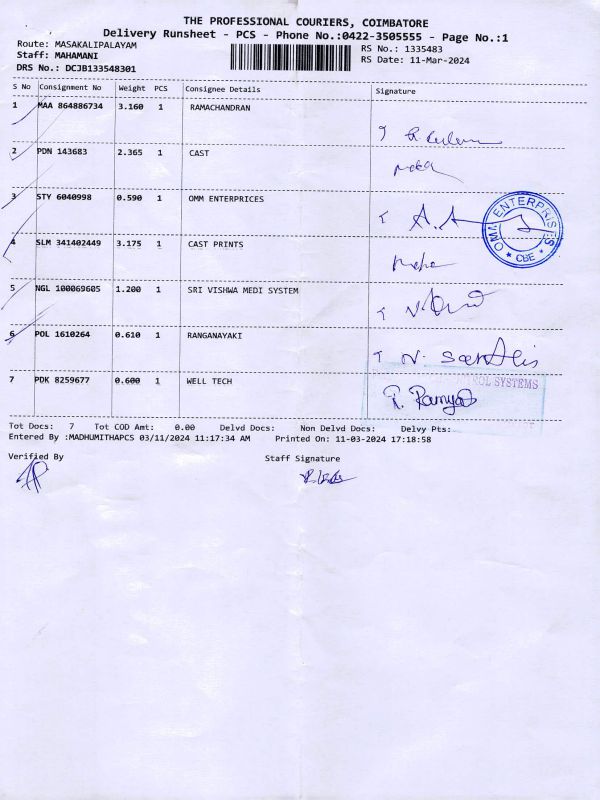 THE PROFESSIONAL COURIERS, COIMBATORE
Delivery Runsheet - PCS - Phone No.:0422-3505555 - Page No.:1
Route: MASAKALIPALAYAM
Staff: MAHAMANI
DRS No.: DCJB133548301
RS No.: 1335483
RS Date: 11-Mar-2024
S No Consignment No Weight PCS Consignee Details Signature
1 MAA 864886734 3.160 1 RAMACHANDRAN
2 PDN 143683 2.365 1 CAST
3 STY 6040998 0.590 1 OMM ENTERPRICES
OMM ENTERPRISES
* CBE *
4 SLM 341402449 3.175 1 CAST PRINTS
5 NGL 100069605 1.200 1 SRI VISHWA MEDI SYSTEM
6 POL 1610264 0.610 1 RANGANAYAKI
7 PDK 8259677 0.600 1 WELL TECH R. Ramya
SYSTEMS
Tot Docs: 7 Tot COD Amt: 0.00 Delvd Docs: Non Delvd Docs: Delvy Pts:
Entered By :MADHUMITHAPCS 03/11/2024 11:17:34 AM Printed On: 11-03-2024 17:18:58
Verified By Staff Signature